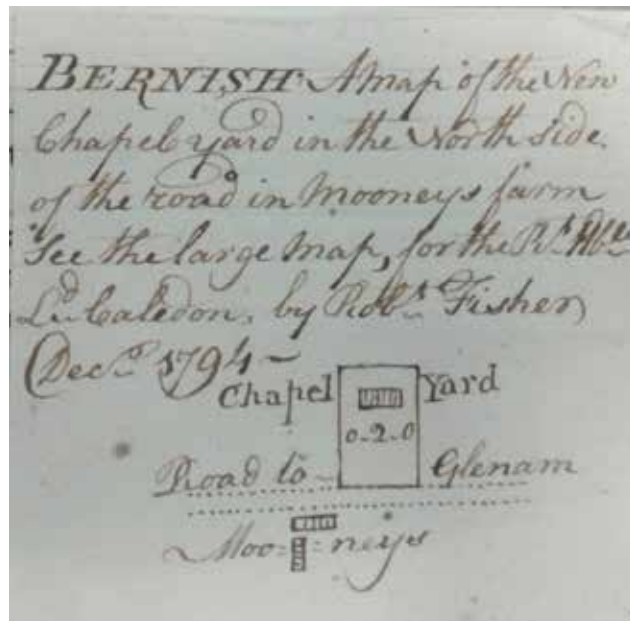 BERNISH A map of the New
Chapel yard in the North side
of the road in Mooneys farm
See the large Map, for the Rt. Hble
Ld. Caledon, by Robt. Fisher
Decr. 1794
Chapel Yard
0-2-0
Road to Glenam
Moo=neys